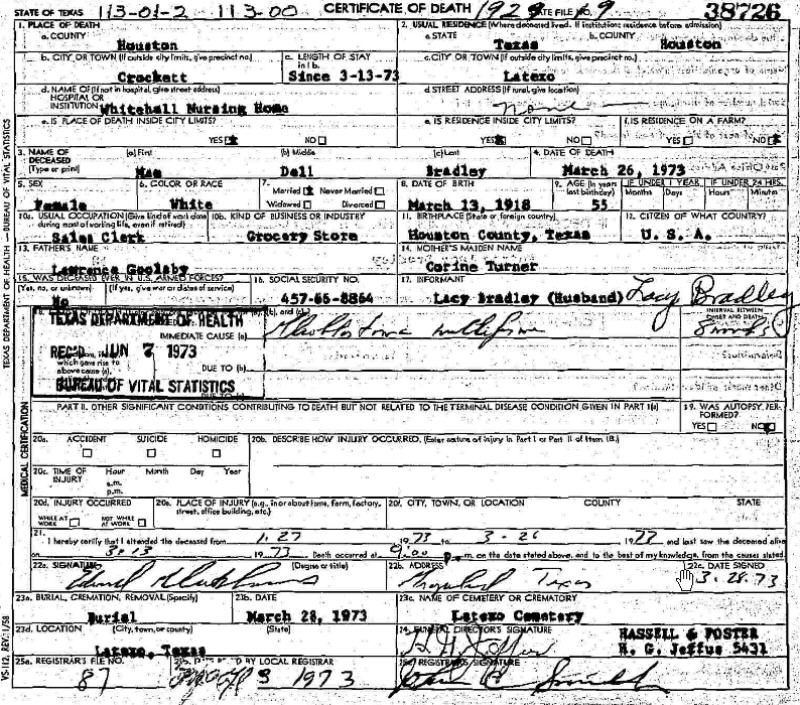 STATE OF TEXAS 113-01-2 113-00 CERTIFICATE OF DEATH STATE FILE NO. 38726
1. PLACE OF DEATH
a. COUNTY Houston
2. USUAL RESIDENCE (Where deceased lived. If institution: residence before admission)
a. STATE Texas b. COUNTY Houston
b. CITY OR TOWN (If outside city limits, give precinct no.) Crockett
c. LENGTH OF STAY in 1b. Since 3-13-73
c. CITY OR TOWN (If outside city limits, give precinct no.) Latexo
d. NAME OF (If not in hospital, give street address)
HOSPITAL OR
INSTITUTION Whitehall Nursing Home
d. STREET ADDRESS (If rural, give location) None
e. IS PLACE OF DEATH INSIDE CITY LIMITS?
YES NO
e. IS RESIDENCE INSIDE CITY LIMITS?
YES NO
f. IS RESIDENCE ON A FARM?
YES NO
3. NAME OF DECEASED (Type or print)
(a) First (b) Middle Dell (c) Last Bradley
4. DATE OF DEATH March 26, 1973
5. SEX Female
6. COLOR OR RACE White
7. Married Never Married
Widowed Divorced
8. DATE OF BIRTH March 13, 1918
9. AGE (In years last birthday) 55
IF UNDER 1 YEAR Months Days
IF UNDER 24 HRS. Hours Minutes
10a. USUAL OCCUPATION (Give kind of work done during most of working life, even if retired) Sales Clerk
10b. KIND OF BUSINESS OR INDUSTRY Grocery Store
11. BIRTHPLACE (State or foreign country) Houston County, Texas
12. CITIZEN OF WHAT COUNTRY? U. S. A.
13. FATHER'S NAME Lawrence Goolsby
14. MOTHER'S MAIDEN NAME Corine Turner
15. WAS DECEASED EVER IN U.S. ARMED FORCES?
(Yes, no, or unknown) (If yes, give war or dates of service)
No
16. SOCIAL SECURITY NO. 457-66-8864
17. INFORMANT Lacy Bradley (Husband) Lacy Bradley
TEXAS DEPARTMENT OF HEALTH
REC'D JUN 7 1973
BUREAU OF VITAL STATISTICS
IMMEDIATE CAUSE (a)
which gave rise to
above cause (a),
DUE TO (b)
INTERVAL BETWEEN ONSET AND DEATH
PART II. OTHER SIGNIFICANT CONDITIONS CONTRIBUTING TO DEATH BUT NOT RELATED TO THE TERMINAL DISEASE CONDITION GIVEN IN PART I(a)
19. WAS AUTOPSY PERFORMED?
YES NO
20a. ACCIDENT SUICIDE HOMICIDE
20b. DESCRIBE HOW INJURY OCCURRED. (Enter nature of injury in Part I or Part II of Item 18.)
20c. TIME OF INJURY Hour Month Day Year
a.m.
p.m.
20d. INJURY OCCURRED
WHILE AT WORK NOT WHILE AT WORK
20e. PLACE OF INJURY (e.g., in or about home, farm, factory, street, office building, etc.)
20f. CITY, TOWN, OR LOCATION COUNTY STATE
21. I hereby certify that I attended the deceased from 1.27 1973 to 3-26 1973 and last saw the deceased alive
on 3.13 1973 Death occurred at 9:00 p.m. on the date stated above, and to the best of my knowledge, from the causes stated.
22a. SIGNATURE (Degree or title)
22b. ADDRESS Texas
22c. DATE SIGNED 3.28.73
23a. BURIAL, CREMATION, REMOVAL (Specify) Burial
23b. DATE March 28, 1973
23c. NAME OF CEMETERY OR CREMATORY Latexo Cemetery
23d. LOCATION (City, town, or county) (State)
Latexo, Texas
24. FUNERAL DIRECTOR'S SIGNATURE HASSELL & FOSTER
H. G. Jeffus 5431
25a. REGISTRAR'S FILE NO. 87
25b. DATE REC'D BY LOCAL REGISTRAR 1973
25c. REGISTRAR'S SIGNATURE
TEXAS DEPARTMENT OF HEALTH — BUREAU OF VITAL STATISTICS
MEDICAL CERTIFICATION
VS-112, REV. 1/58